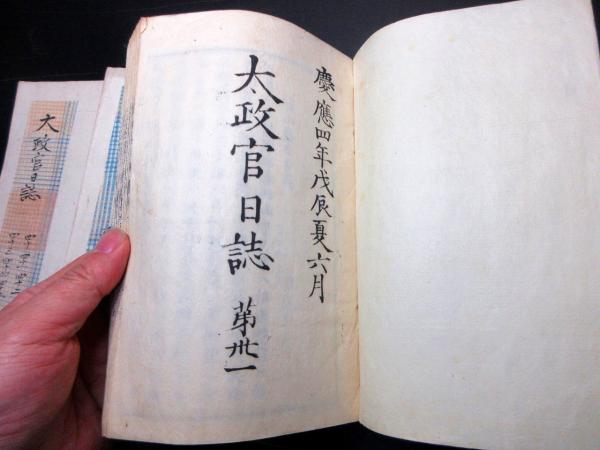 慶應四年戊辰夏六月
太政官日誌 第卅一
太政官日誌